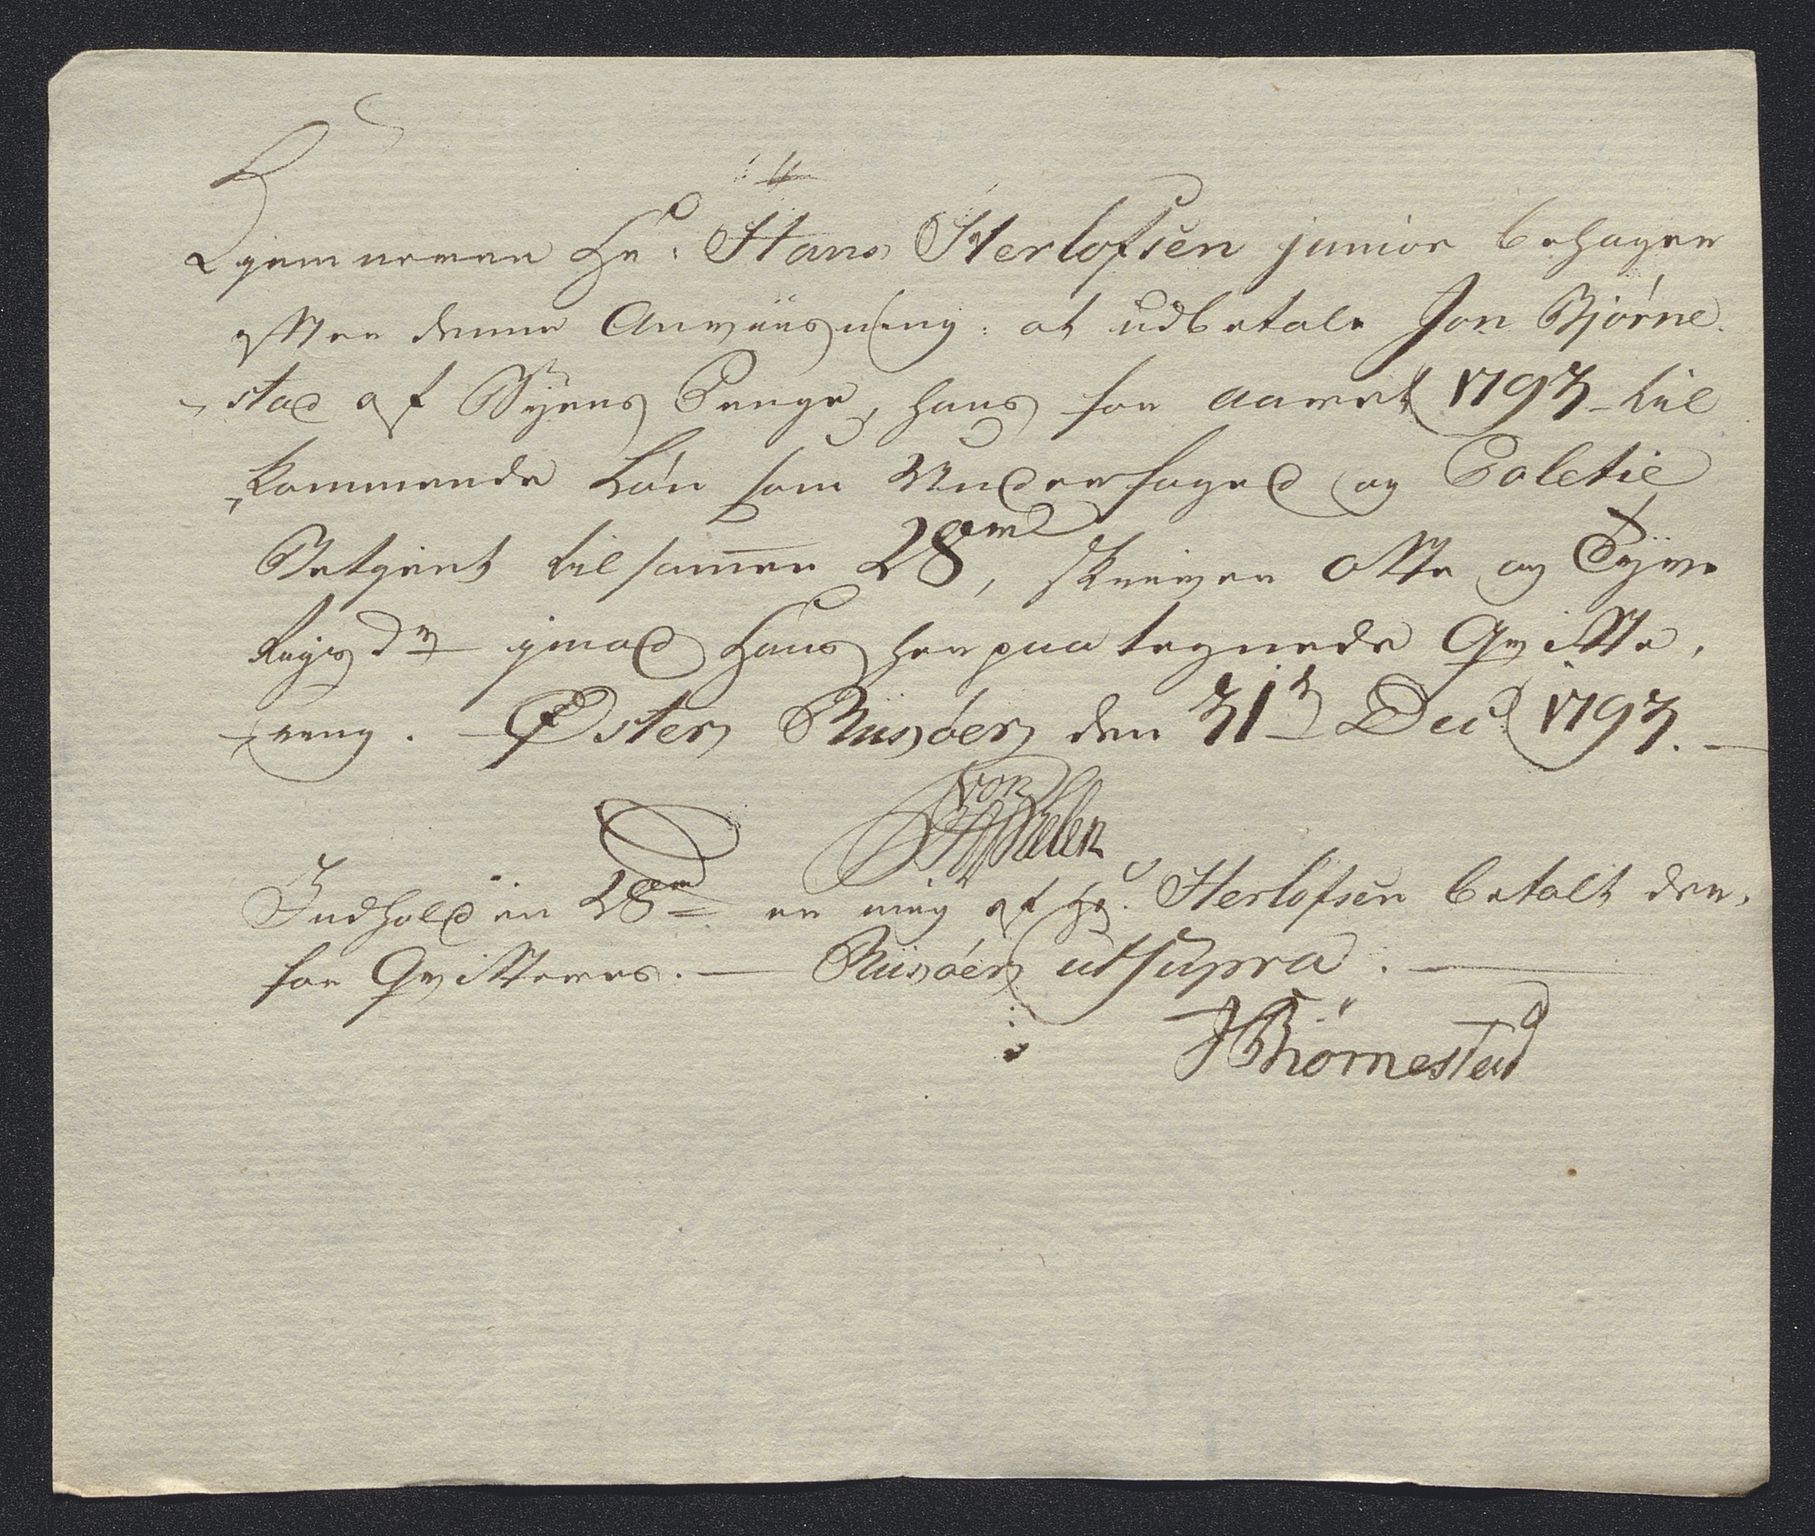 Kjemneren Hr: Hans Herlofsen junior behager
efter denne Anviisning: at udbetale Jon Bjørne-
stad af Byens Penge, hans for aaret 1793 til
kommende Løn som Underfoged og Poletie
Betjent tilsamen 28rd, skriver Otte og Tÿve
Rigsdr imod Hans herpaa tegnede Qvitte-
ring. Øster Riisøer den 31t Decr 1793.
von
Indholden 28rd er mig af Hr. Herlofsen betalt der-
for Qvitteres. Riisøer ut supra.
JBiørnestad